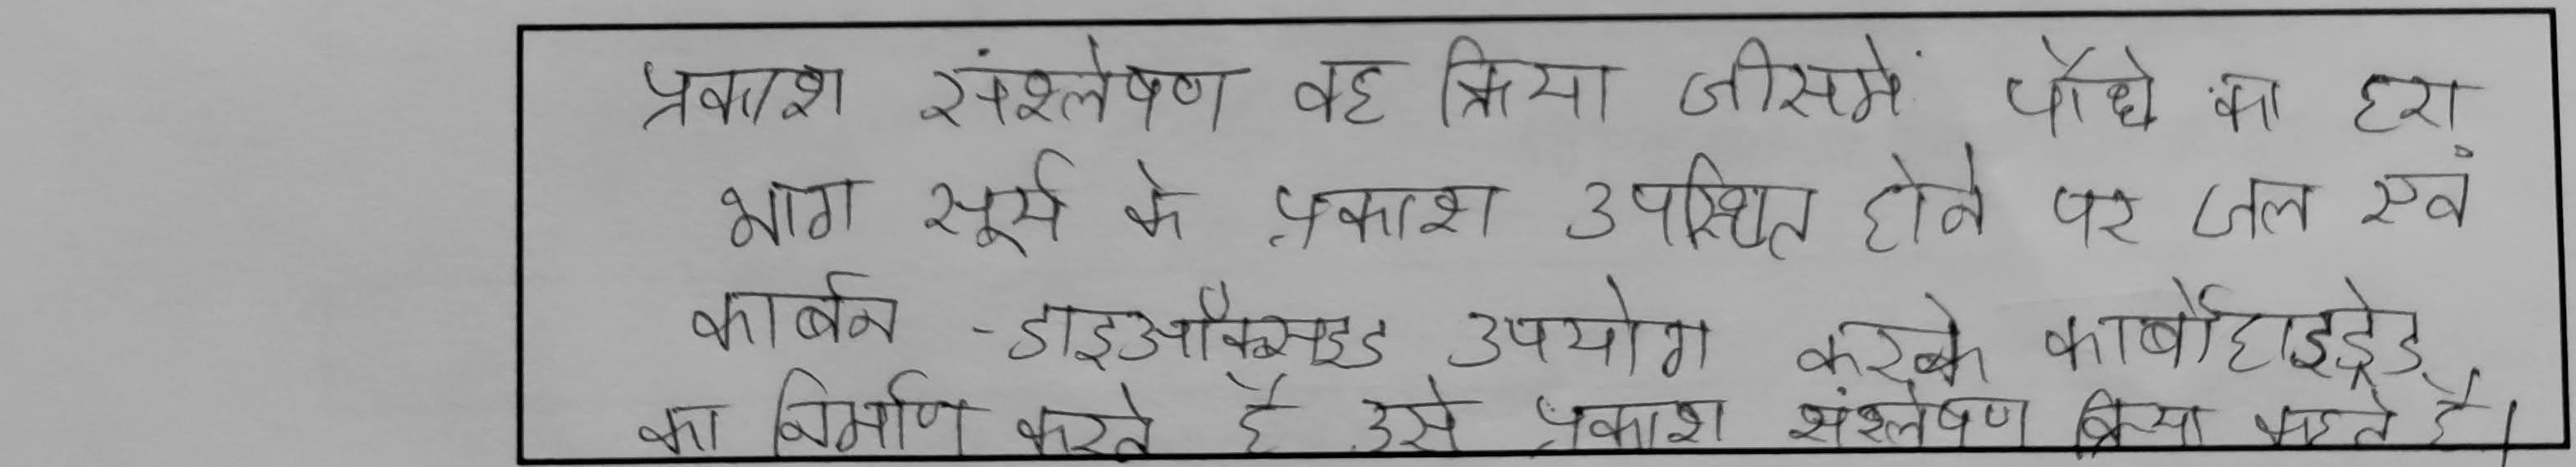 प्रकाश संश्लेषण वह क्रिया जीसमें पौधे का हरा
भाग सूर्य के प्रकाश उपस्थित होने पर जल एवं
कार्बन -डाइऑक्सइड उपयोग करके कार्बोहाइड्रेड
का निर्माण करते है उसे प्रकाश संश्लेषण क्रिया कहते है।